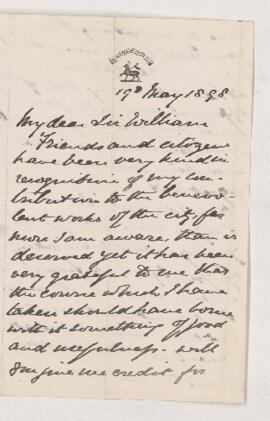 19th May 1898
My dear Sir William
Friends and citizens
have been very kind in
recognition of my con-
tribution to the benevo-
lent works of the city far
more I am aware than is
deserved yet it has been
very grateful to me that
the course which I have
taken should have borne
with it something of good
and usefulness. Will
you give me credit for